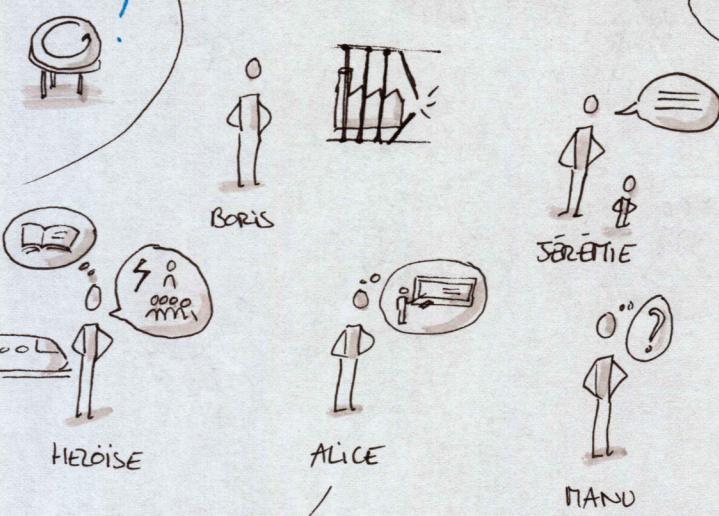 BORIS
JÉRÉMIE
HELOÏSE
ALICE
MANU
?